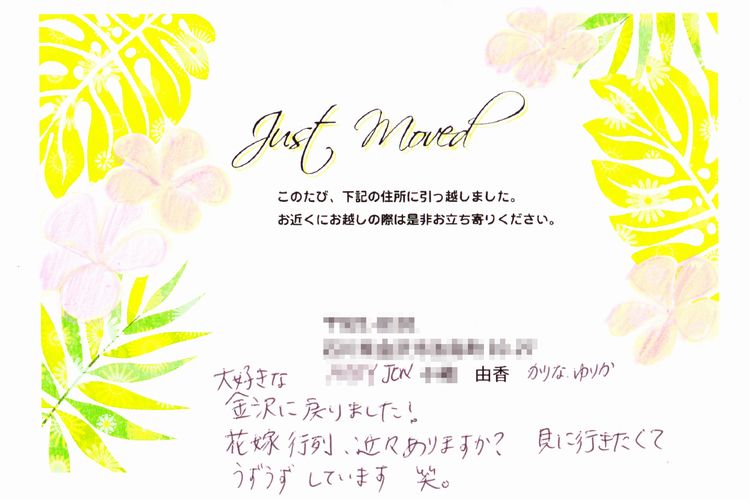 Just Moved
このたび、下記の住所に引っ越しました。
お近くにお越しの際は是非お立ち寄りください。
大好きな JON 由香 かりな.ゆりか
金沢に戻りました!
花嫁行列、近々ありますか? 見に行きたくて
うずうずしています 笑。